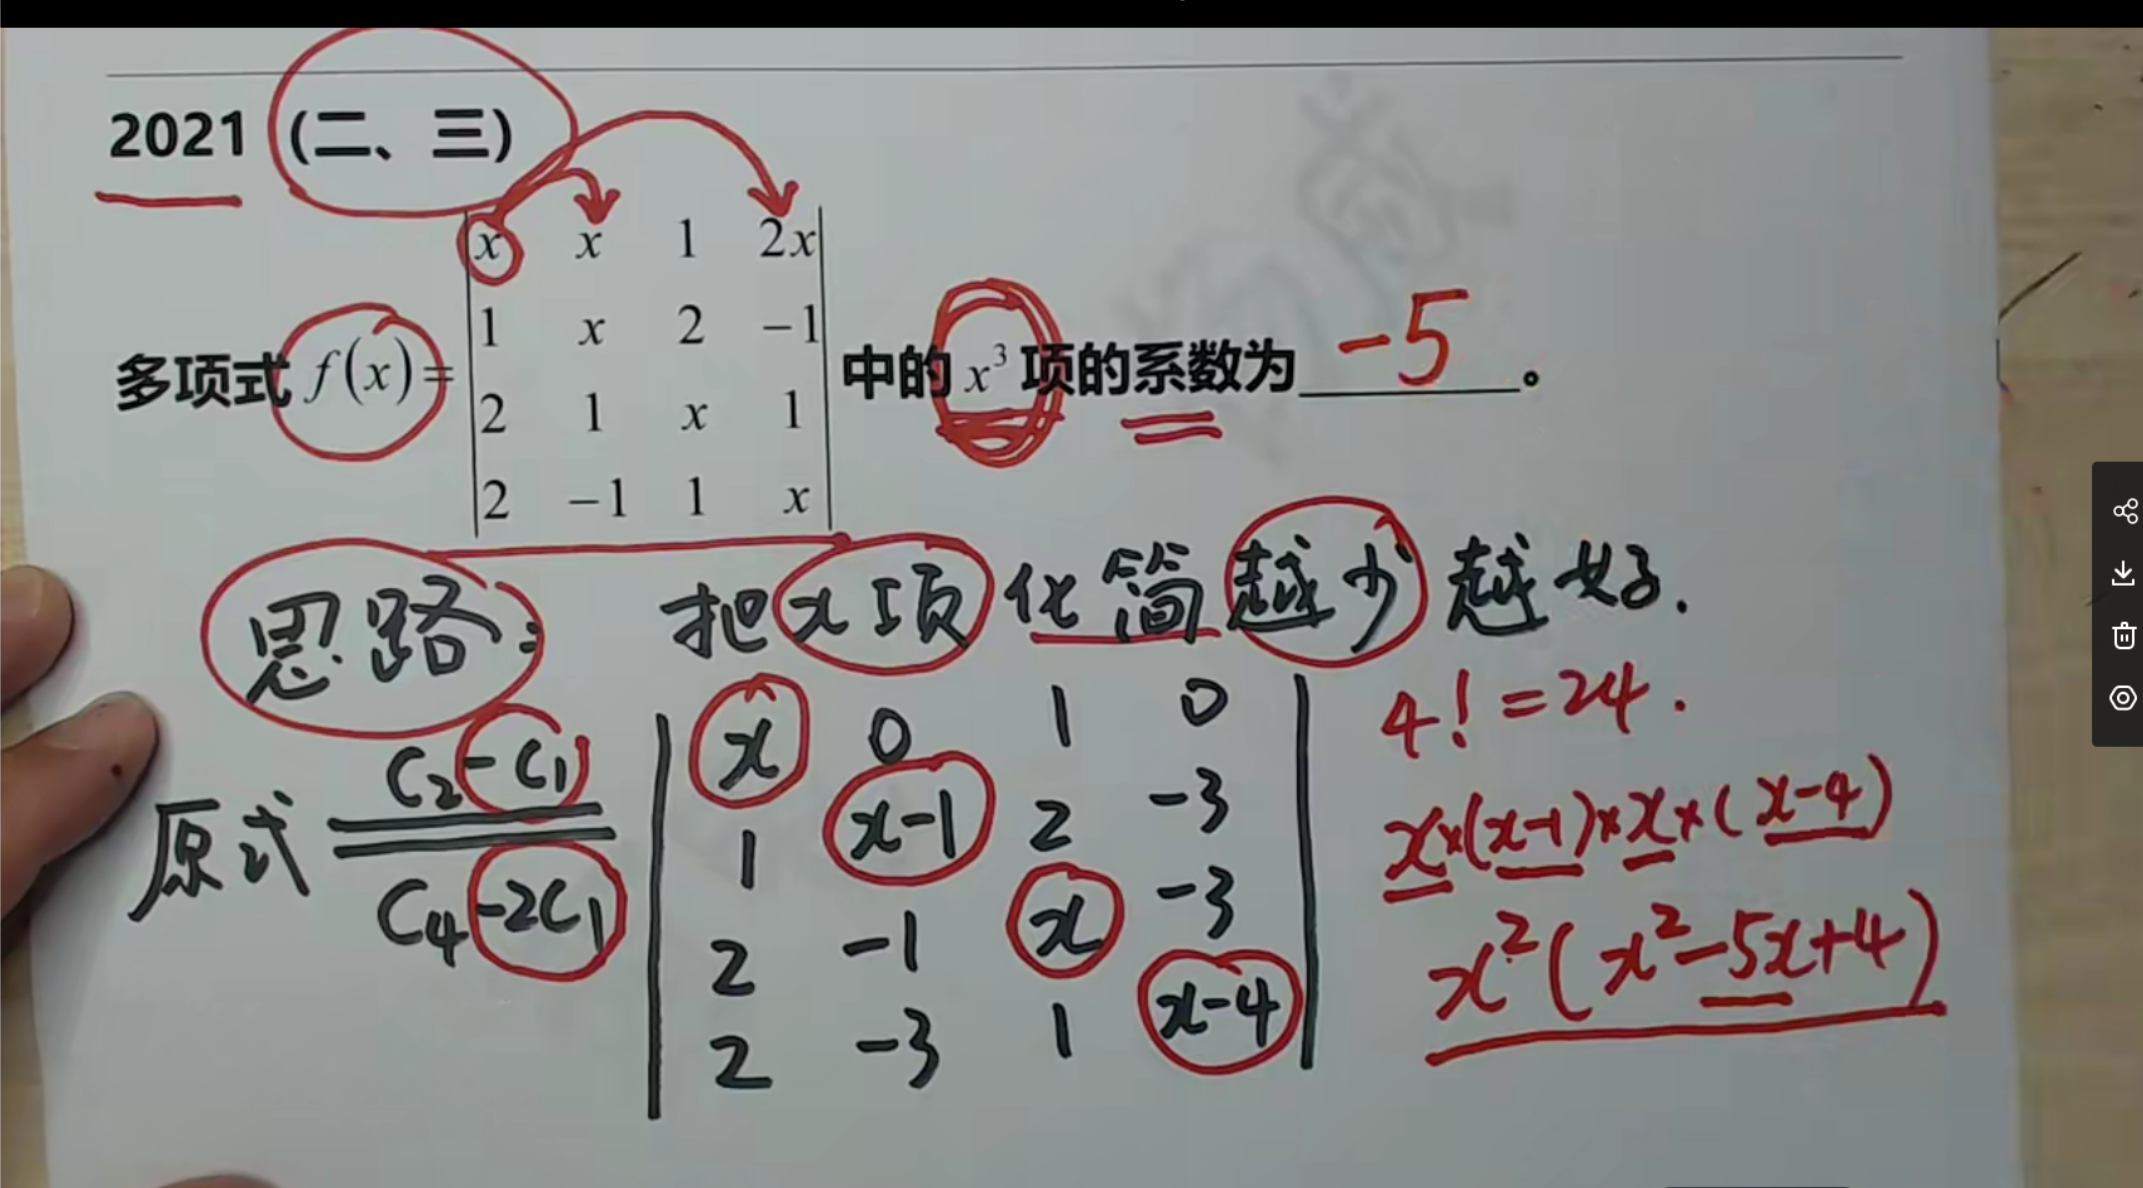 2021 (二、三)
多项式 f(x)=
x x 1 2x
1 x 2 -1
2 1 x 1
2 -1 1 x
中的 x³ 项的系数为 -5 。
思路: 把x项化简越少越好.
4! = 24.
原式
C₂-C₁
C₄-2C₁
x 0 1 0
1 x-1 2 -3
2 -1 x -3
2 -3 1 x-4
x×(x-1)×x×(x-4)
x²(x²-5x+4)